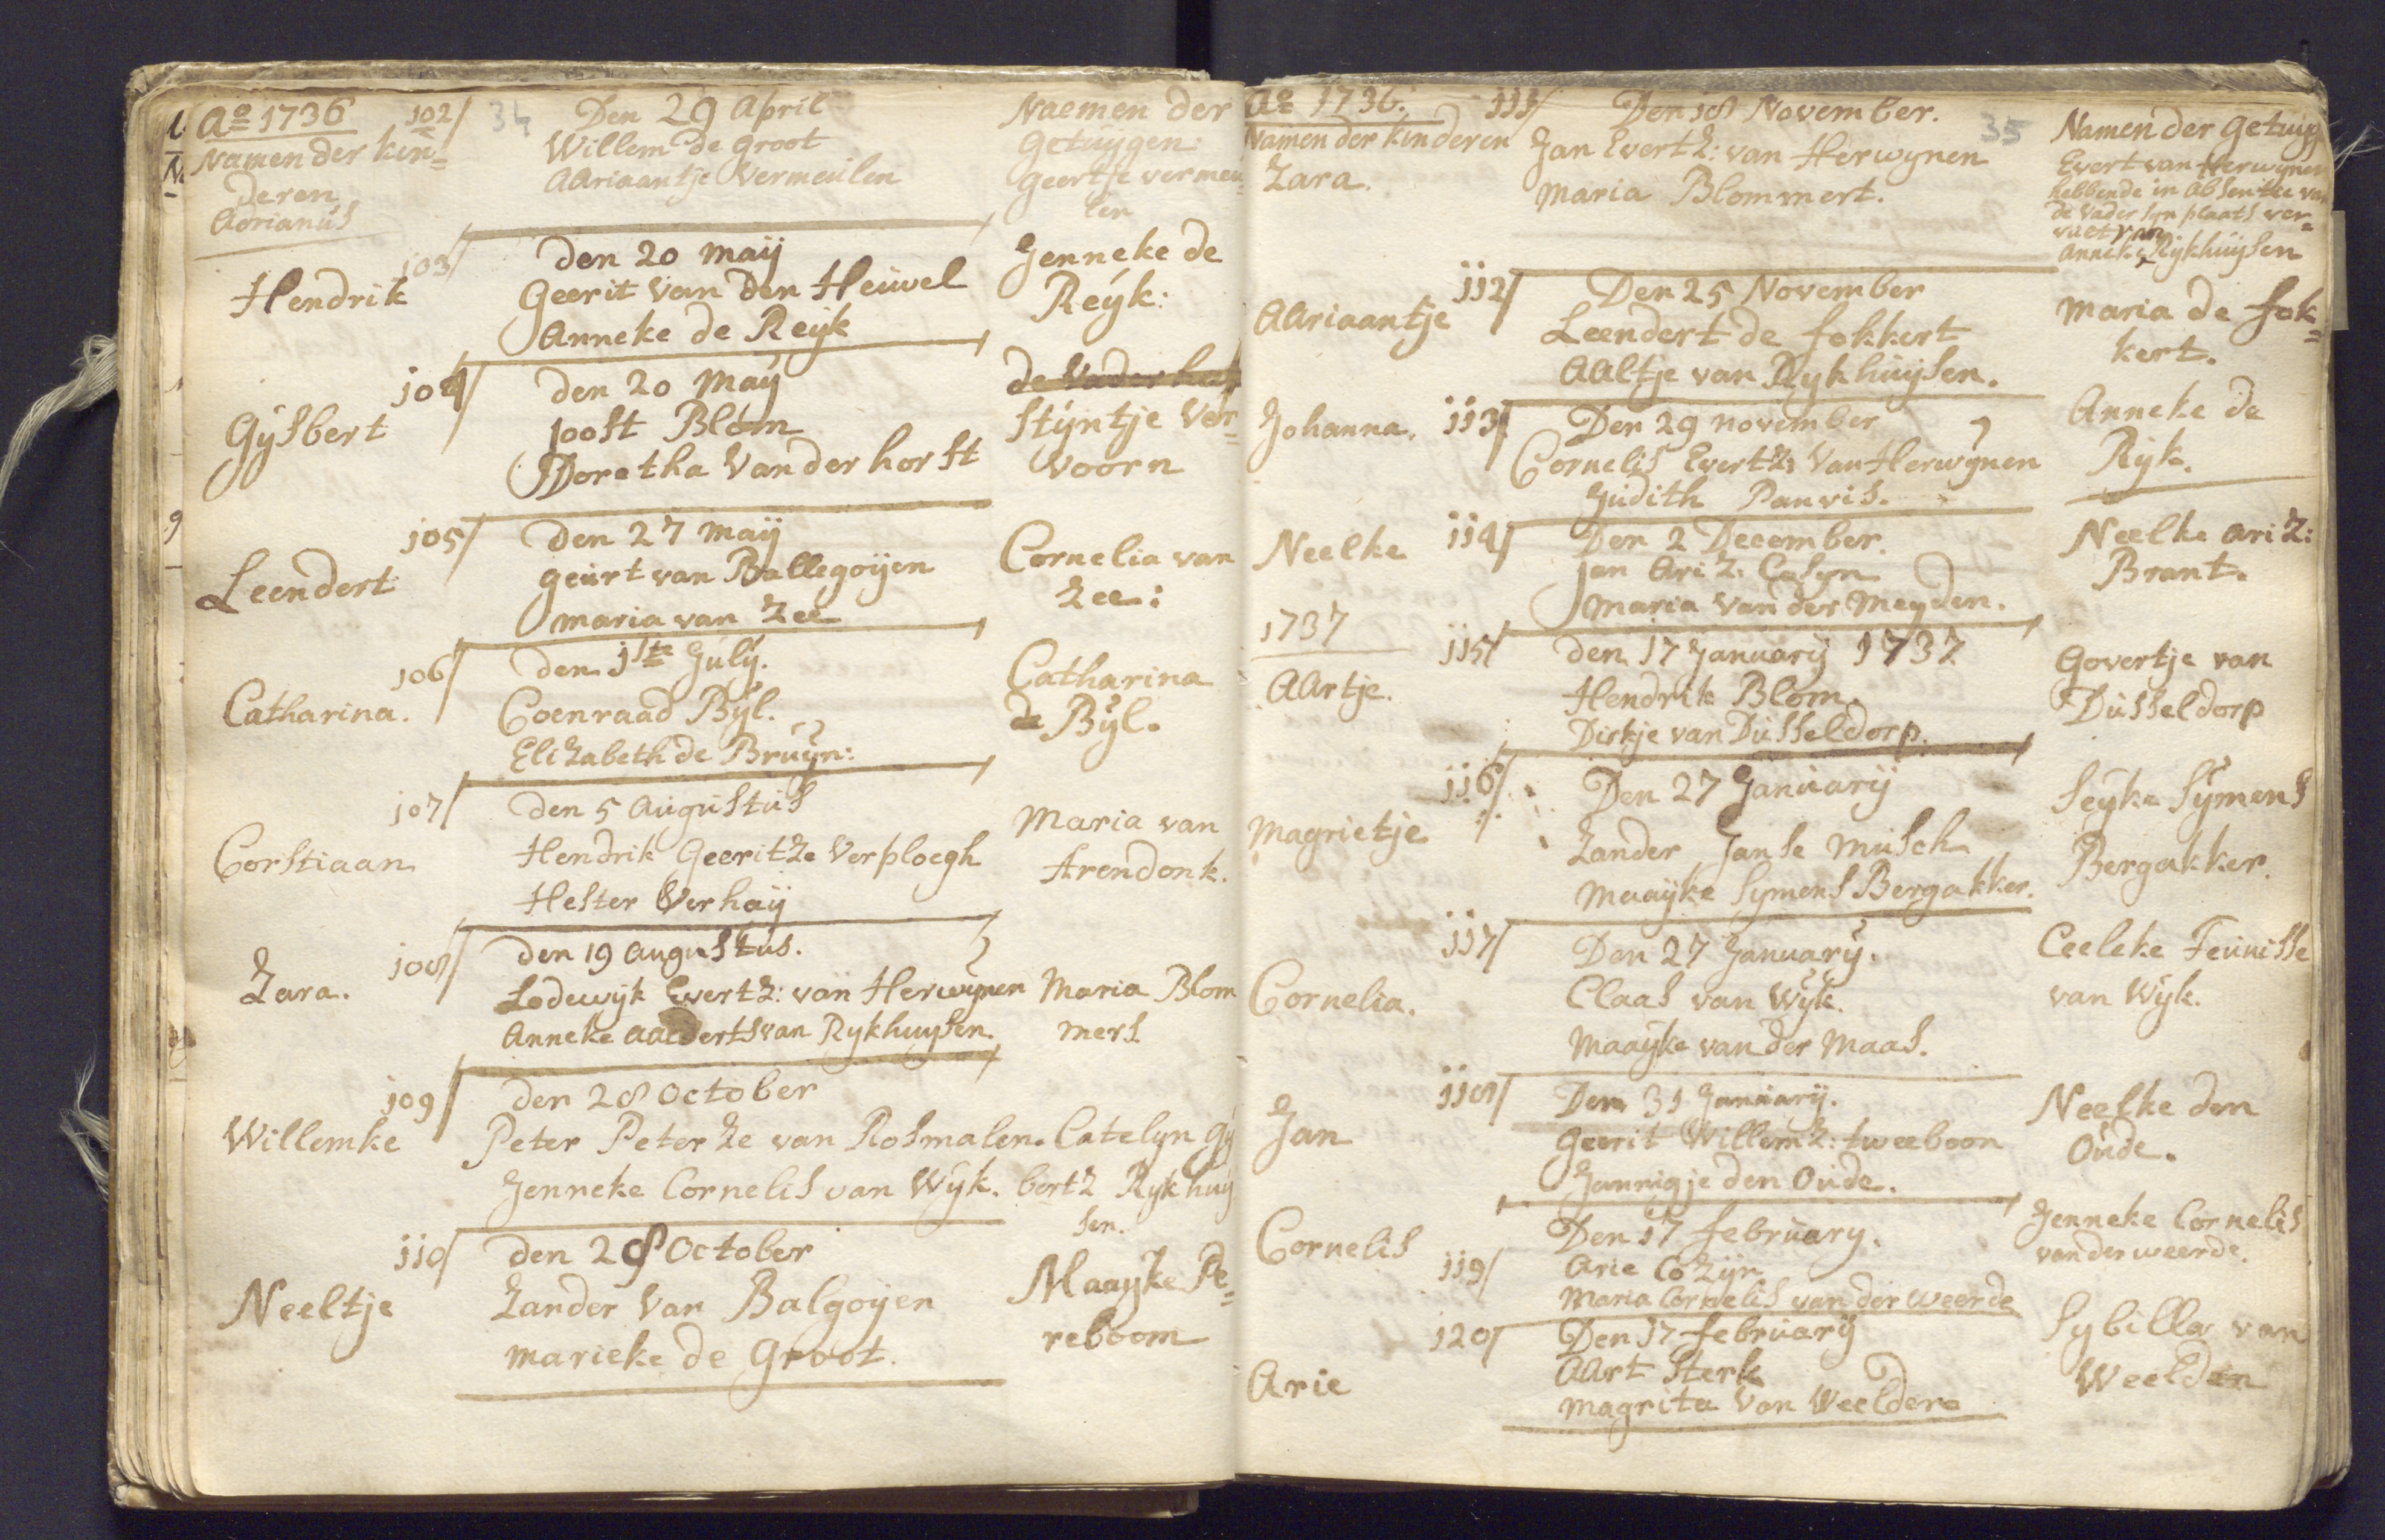 Ao 1736 102/ 34 Den 29 April Naemen der
Namen der kin= Willem de Groot Getuygen
deren AAriaantje Vermeulen Geertje vermeu=
Adrianus len
103/ Den 20 Maij Jenneke de
Hendrik Geerit Van Den Heuvel Reyk:
Anneke de Reyk
104/ Den 20 May de Vader
Gysbert Joost Blom Styntje Ver=
Doretha Van der horst voorn
105/ Den 27 Maij Cornelia van
Leendert Geurt van Ballegoyen Zee:
Maria van Zee
106/ Den 1ste July. Catharina
Catharina. Coenraad Byl. de Byl.
Elizabeth de Bruyn:
107/ Den 5 Augustus Maria van
Corstiaan Hendrik Geeritze Verploegh Arendonk.
Hester Verhaij
108/ Den 19 Augustus.
Zara. Lodewyk Evertz: van Herwynen Maria Blom
Anneke Aalderts van Rykhuysen. mers
109/ Den 28 October
Willemke Peter Peterze van Rosmalen. Catelyn Gy
Jenneke Cornelis van Wyk. bertz Rykhuy
sen.
110/ Den 28 October Maayke Pe=
Neeltje Zander Van Balgoyen reboom
Marieke de Groot.
Ao 1736. 111/ Den 18 November. 35 Namen der Getuyg
Namen der kinderen Jan Evertz: van Herwynen Evert van Herwynen
Zara. Maria Blommert. hebbende in absentie van
de Vader syn plaats ver=
vaet van
Anneke Rykhuysen
112/ Den 25 November Maria de Fok=
AAriaantje Leendert de Fokkert kert.
AAltje van Rykhuysen.
Johanna. 113/ Den 29 november Anneke de
Cornelis Evertz: Van Herwynen Ryk.
Judith Panvis.
Neelke 114/ Den 2 December. Neelke Ariz:
Jan Ariz: Casyn Brant.
Maria Van der Meyden.
1737 115/ Den 17 January 1737 Govertje van
AArtje. Hendrik Blom. Dusseldorp
Dirkje van Dusseldorp.
116/ Den 27 Januarij Seyke Symens
Magrietje Zander Janse Musch Bergakker.
Maayke Symens Bergakker.
117/ Den 27 January. Ceeleke Teunisse
Cornelia. Claas van Wyk. van Wyk.
Maayke van der Maas.
118/ Den 31 Januarij. Neelke den
Jan Geerit Willemz: tweeboon Oude.
Jannigje den Oude.
Cornelis Den 17 February. Jenneke Cornelis
119/ Arie Cozijn van der weerde.
Maria Cornelis van der weerde
120/ Den 17 february Sybilla van
Arie AArt Sterk Weelden
Magrita Van Weeldere